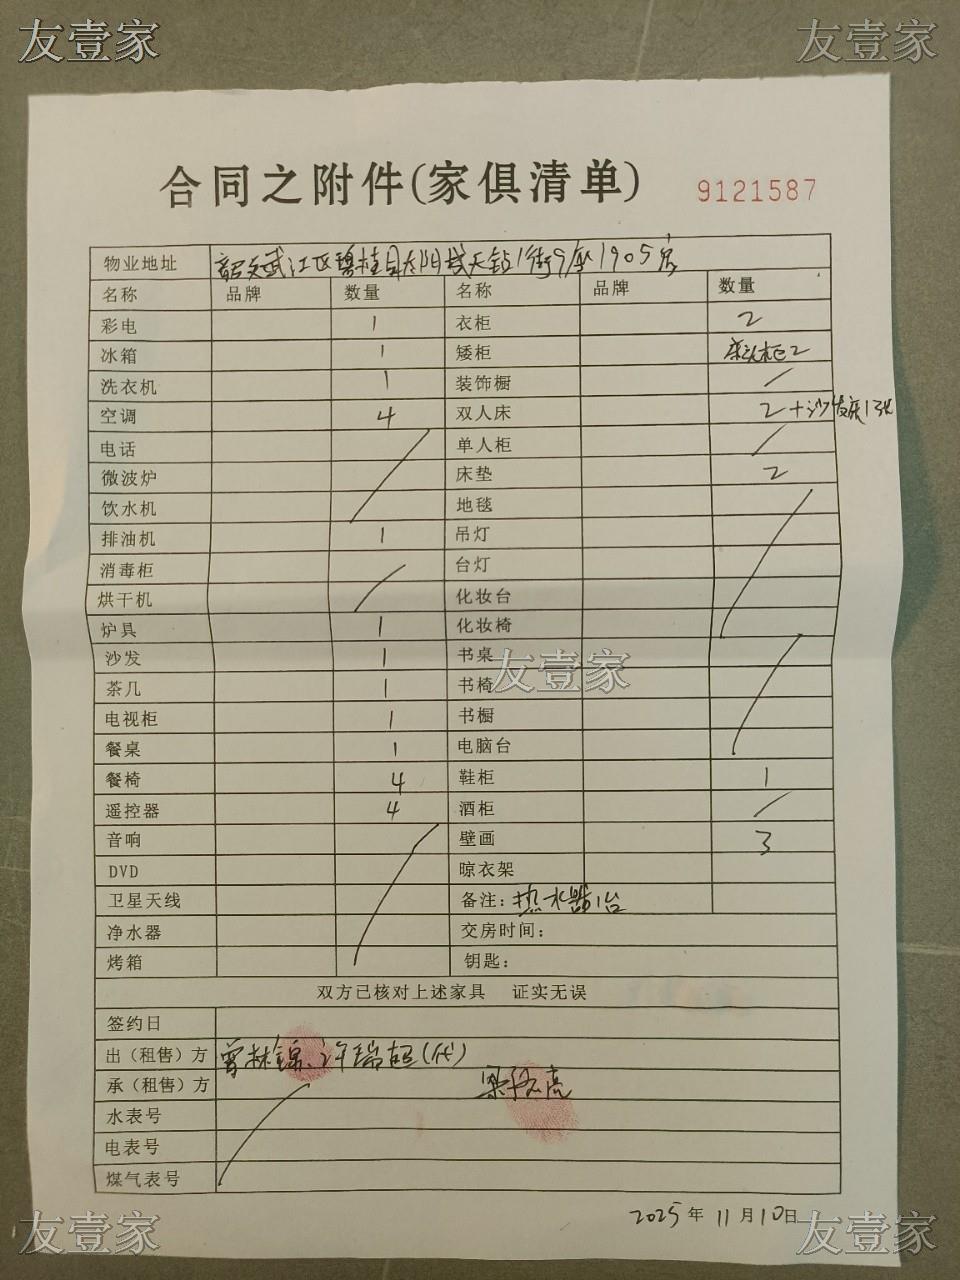 友壹家 友壹家
合同之附件(家俱清单) 9121587
物业地址 韶关武江区碧桂园太阳城天钻1街9座1905房
名称 品牌 数量 名称 品牌 数量
彩电 1 衣柜 2
冰箱 1 矮柜 床头柜2
洗衣机 1 装饰橱 /
空调 4 双人床 2+沙发床1张
电话 单人柜 /
微波炉 床垫 2
饮水机 地毯
排油机 1 吊灯
消毒柜 台灯
烘干机 化妆台
炉具 1 化妆椅
沙发 1 书桌
茶几 1 书椅
友壹家
电视柜 1 书橱
餐桌 1 电脑台
餐椅 4 鞋柜 1
遥控器 4 酒柜 /
音响 壁画 3
DVD 晾衣架
卫星天线 备注：热水器1台
净水器 交房时间：
烤箱 钥匙：
双方已核对上述家具 证实无误
签约日
出（租售）方 曾林锦、许瑞(代)
承（租售）方 梁
水表号
电表号
煤气表号
2025年11月10日
友壹家 友壹家